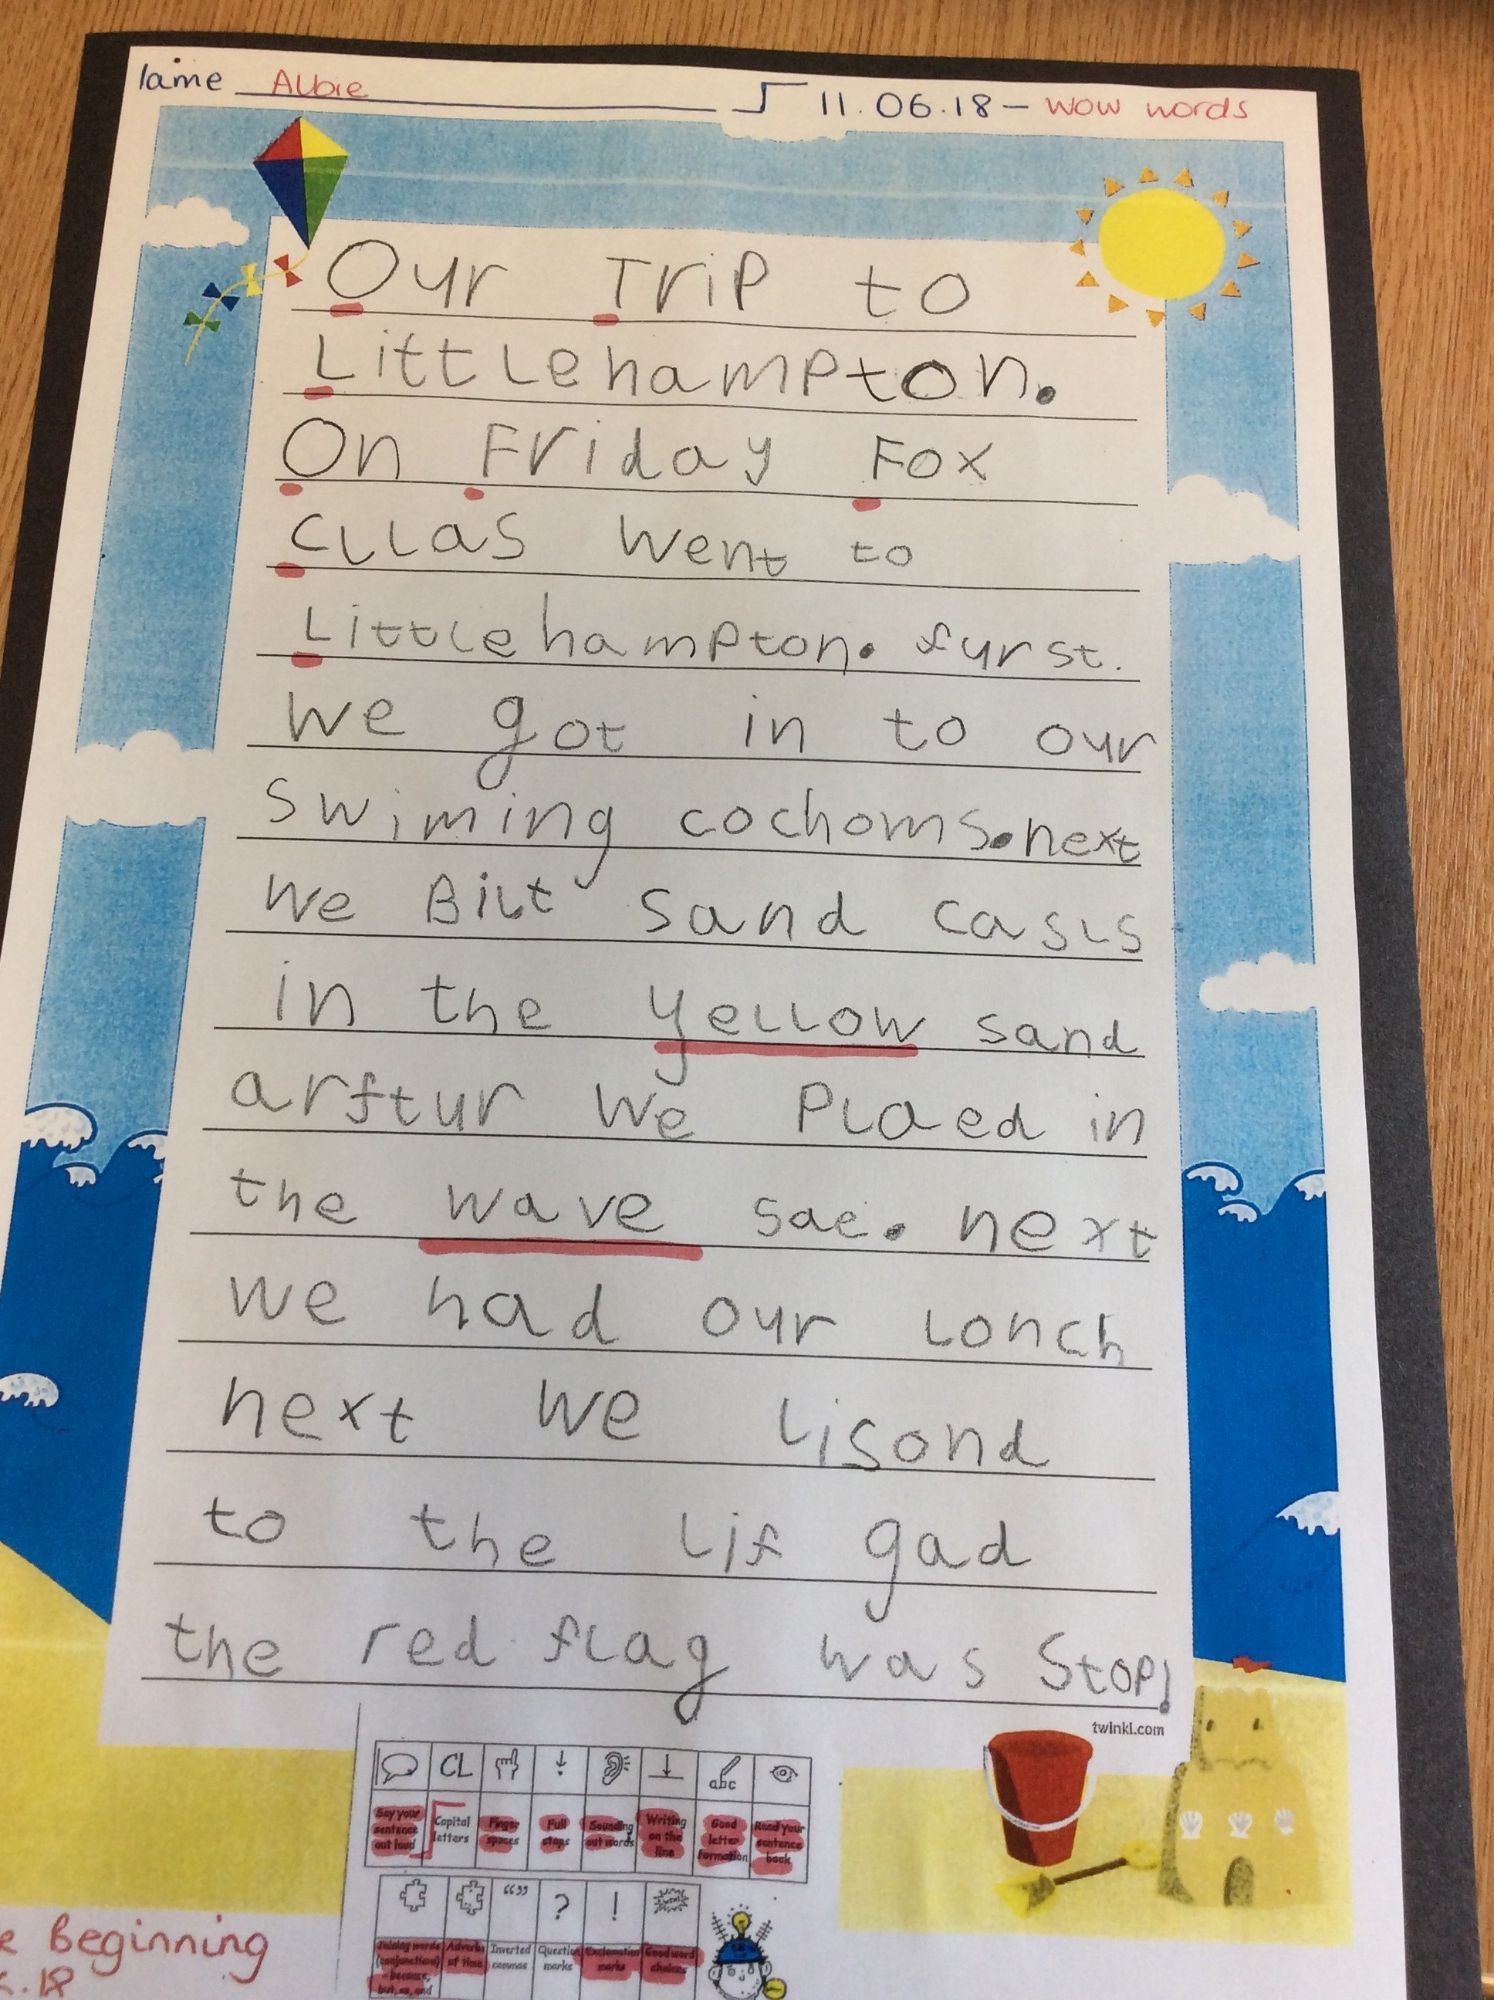 lame Albie 11.06.18 - wow words
Our Trip to
Littlehampton.
On Friday Fox
Cllas went to
Littlehampton. furst.
we got in to our
swiming cochoms. next
we Bilt sand casls
in the yellow sand
arftur we Plaed in
the wave sae. next
we had our lonch
next we lisond
to the lif gad
the red flag was Stop!
twinkl.com
CL abc
Say your sentence out loud Capital letters Finger spaces Full stops Sounding out words Writing on the line Good letter formation Read your sentence back
“” ? !
Joining words (conjunctions) - because, but, so, and Adverbs of time Inverted commas Question marks Exclamation marks Good word choices
e Beginning
.18